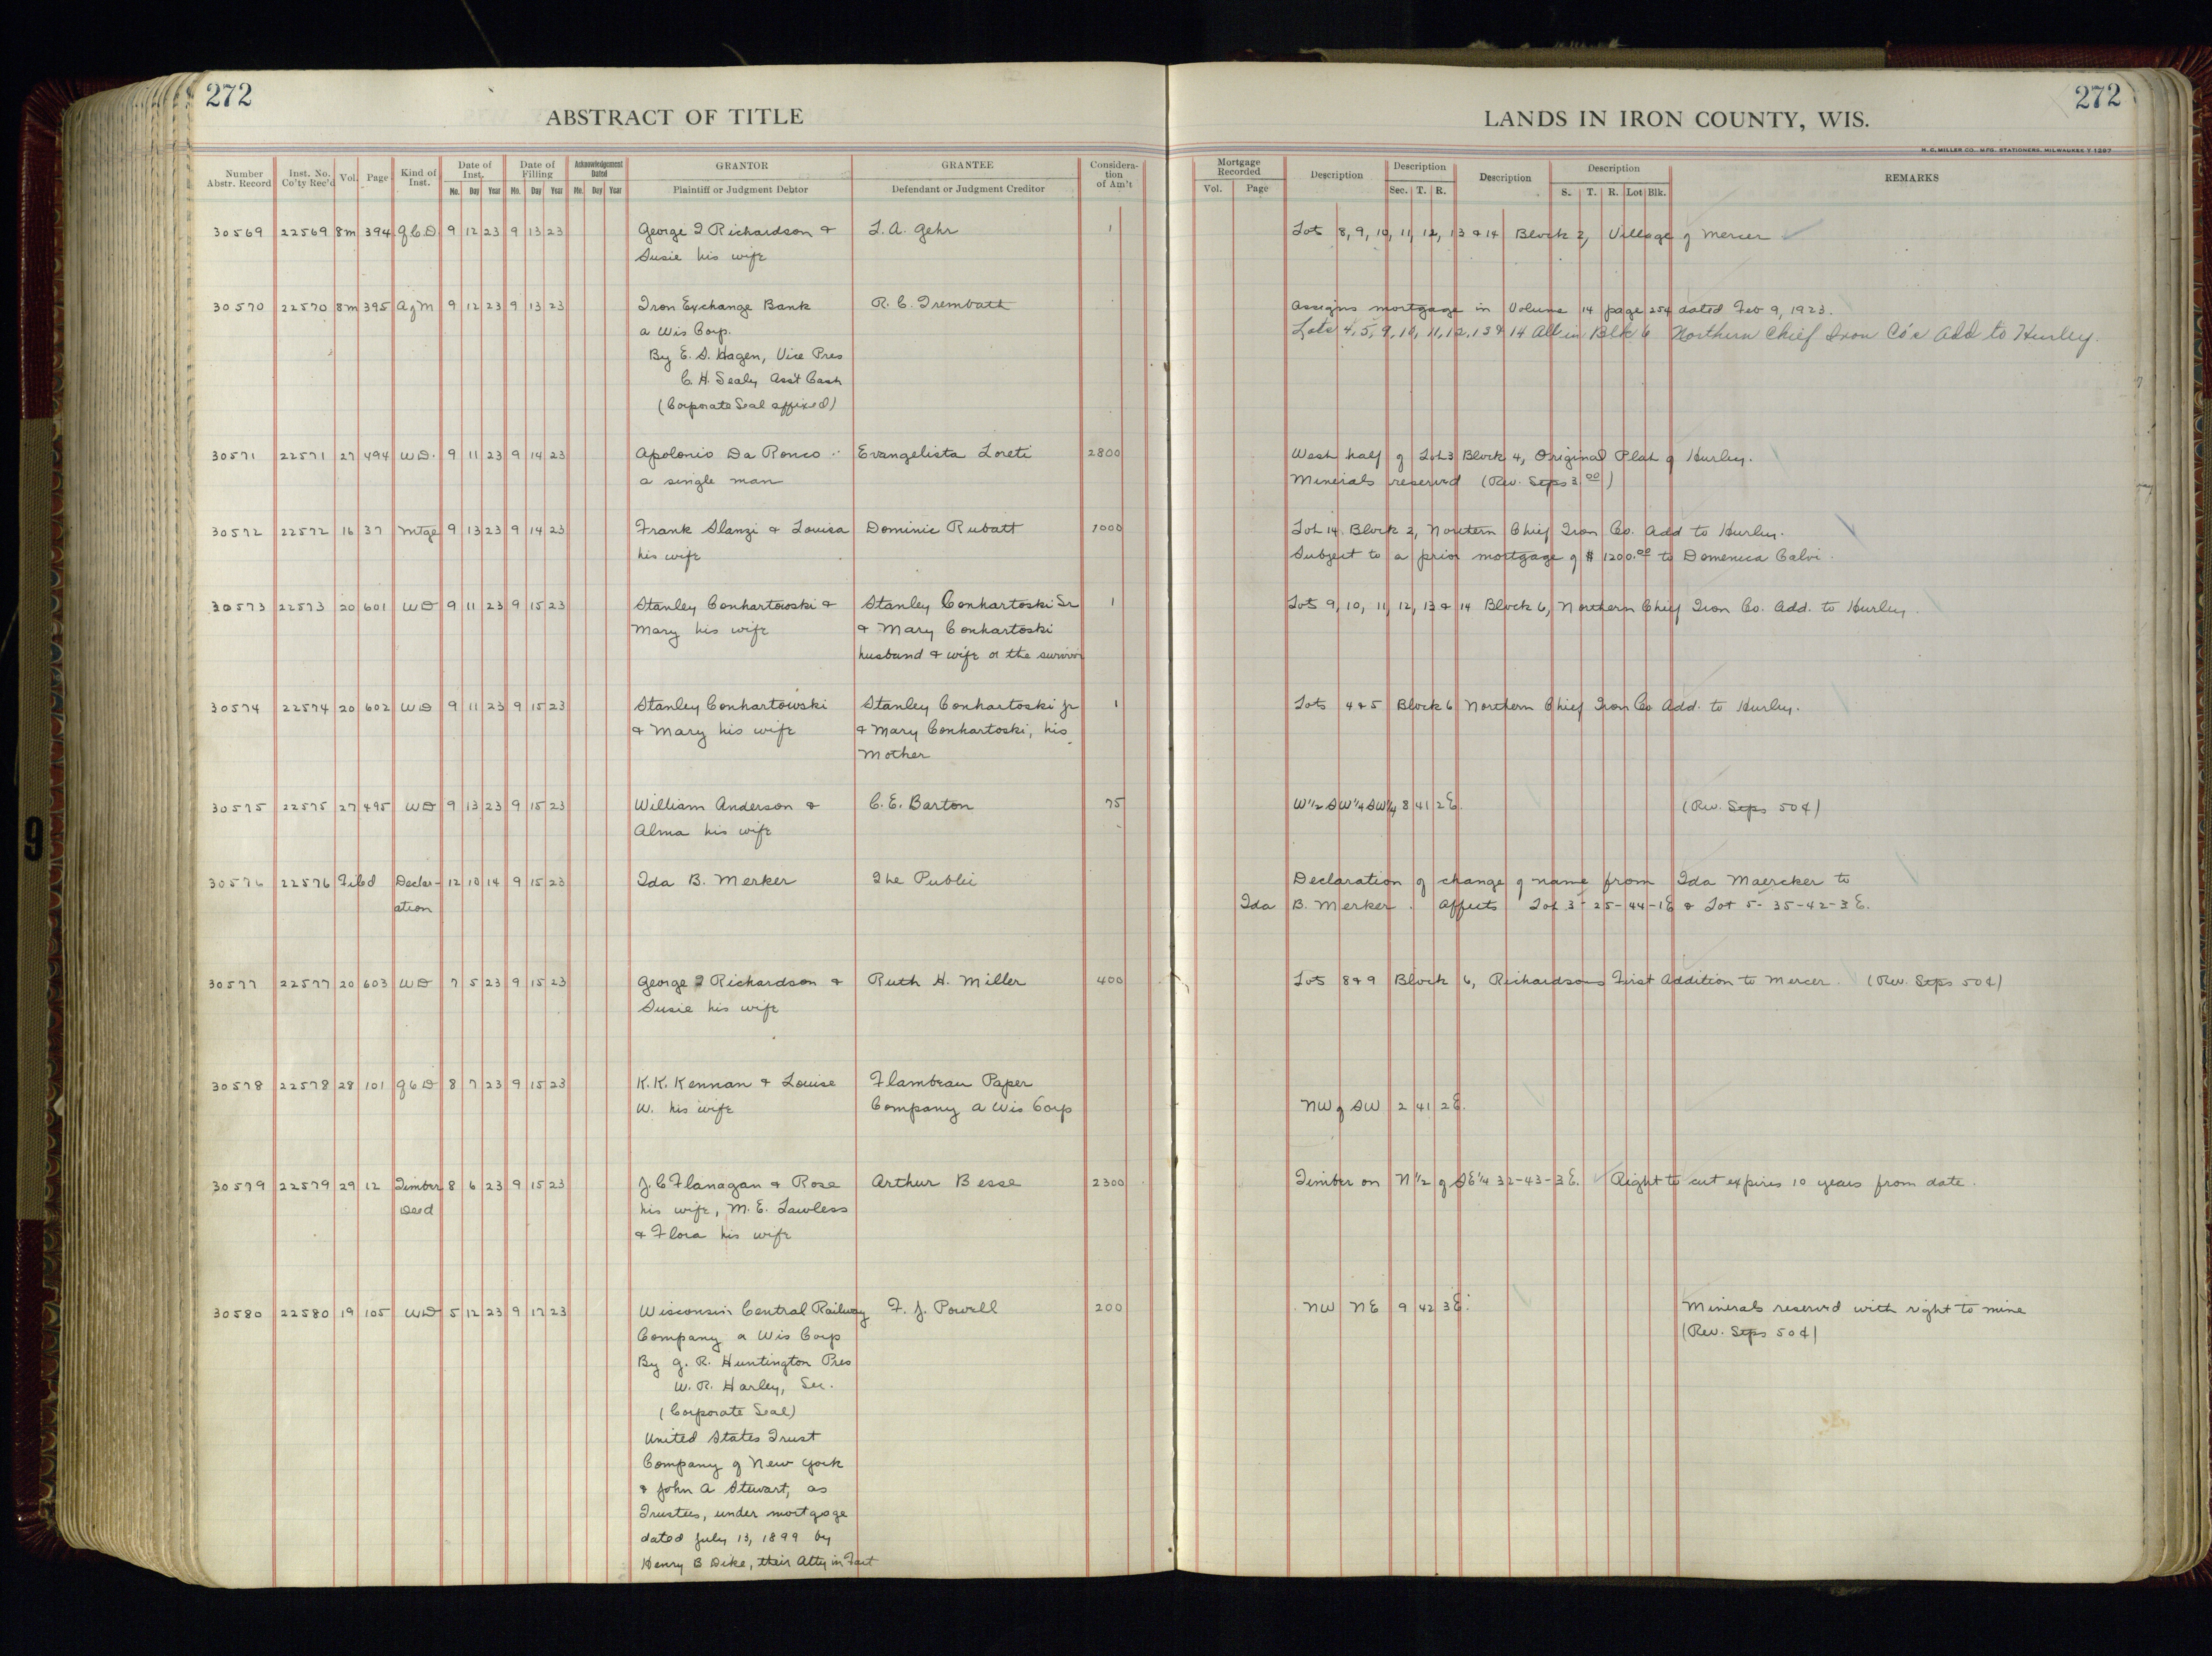 272
272
ABSTRACT OF TITLE
LANDS IN IRON COUNTY, WIS.
H. C. MILLER CO., MFG. STATIONERS, MILWAUKEE
Number Abstr. Record | Inst. No. Co'ty Rec'd | Vol. | Page | Kind of Inst. | Date of Inst. | Date of Filling | Acknowledgement Dated | GRANTOR | GRANTEE | Considera-tion of Am't | Mortgage Recorded | Description | Description | Description | Description | REMARKS
Mo. Day Year | Mo. Day Year | Mo. Day Year | Plaintiff or Judgment Debtor | Defendant or Judgment Creditor | Vol. | Page | Sec. | T. | R. | S. | T. | R. | Lot | Blk.
30569 22569 8m 394 Q.C.D. 9 12 23 9 13 23 George I Richardson & L. A. Gehr 1 Lots 8, 9, 10, 11, 12, 13 & 14 Block 2, Village of Mercer
Susie his wife
30570 22570 8m 395 A of M 9 12 23 9 13 23 Iron Exchange Bank R. C. Trembath Assigns mortgage in Volume 14 page 254 dated Feb 9, 1923.
a Wis Corp. Lots 4, 5, 9, 10, 11, 12, 13 & 14 All in Blk 6 Northern Chief Iron Co's Add to Hurley.
By E. S. Hagen, Vice Pres
C. H. Sealy Ass't Cash
(Corporate Seal affixed)
30571 22571 27 494 WD. 9 11 23 9 14 23 Apolonio Da Ronco Evangelista Loreti 2800 West half of Lot 3 Block 4, Original Plat of Hurley.
a single man Minerals reserved (Rev. Stps 3.00)
30572 22572 16 37 Mtge 9 13 23 9 14 23 Frank Slanzi & Louisa Dominic Rubatt 1000 Lot 14 Block 2, Northern Chief Iron Co. Add to Hurley.
his wife Subject to a prior mortgage of $ 1200.00 to Domenica Calvi.
30573 22573 20 601 WD 9 11 23 9 15 23 Stanley Conhartowski & Stanley Conhartoski Sr 1 Lots 9, 10, 11, 12, 13 & 14 Block 6, Northern Chief Iron Co. Add. to Hurley.
Mary his wife & Mary Conhartoski
husband & wife or the survivor
30574 22574 20 602 WD 9 11 23 9 15 23 Stanley Conhartowski Stanley Conhartoski Jr 1 Lots 4 & 5 Block 6 Northern Chief Iron Co Add. to Hurley.
& Mary his wife & Mary Conhartoski, his
Mother
30575 22575 27 495 WD 9 13 23 9 15 23 William Anderson & C. E. Barton 75 W 1/2 SW 1/4 SW 1/4 8 41 2E. (Rev. Stps 50¢)
Alma his wife
30576 22576 Filed Declar- 12 10 14 9 15 23 Ida B. Merker The Public Declaration of change of name from Ida Maercker to
ation Ida B. Merker. Affects Lot 3 - 25-44-1E & Lot 5- 35-42-3E.
30577 22577 20 603 WD 7 5 23 9 15 23 George I Richardson & Ruth H. Miller 400 Lots 8 & 9 Block 6, Richardsons First Addition to Mercer. (Rev. Stps 50¢)
Susie his wife
30578 22578 28 101 Q C D 8 7 23 9 15 23 K. K. Kennan & Louise Flambeau Paper
W. his wife Company a Wis Corp NW of SW 2 41 2E.
30579 22579 29 12 Timber 8 6 23 9 15 23 J. C Flanagan & Rose Arthur Besse 2300 Timber on N 1/2 of SE 1/4 32-43-3E. Right to cut expires 10 years from date.
Deed his wife, M. E. Lawless
& Flora his wife
30580 22580 19 105 WD 5 12 23 9 17 23 Wisconsin Central Railway F. J. Powell 200 NW NE 9 42 3E. Minerals reserved with right to mine
Company a Wis Corp (Rev. Stps 50¢)
By G. R. Huntington Pres
W. R. Harley, Sec.
(Corporate Seal)
United States Trust
Company of New York
& John A Stewart, as
Trustees, under mortgage
dated July 13, 1899 by
Henry B Dike, their Atty in Fact
9